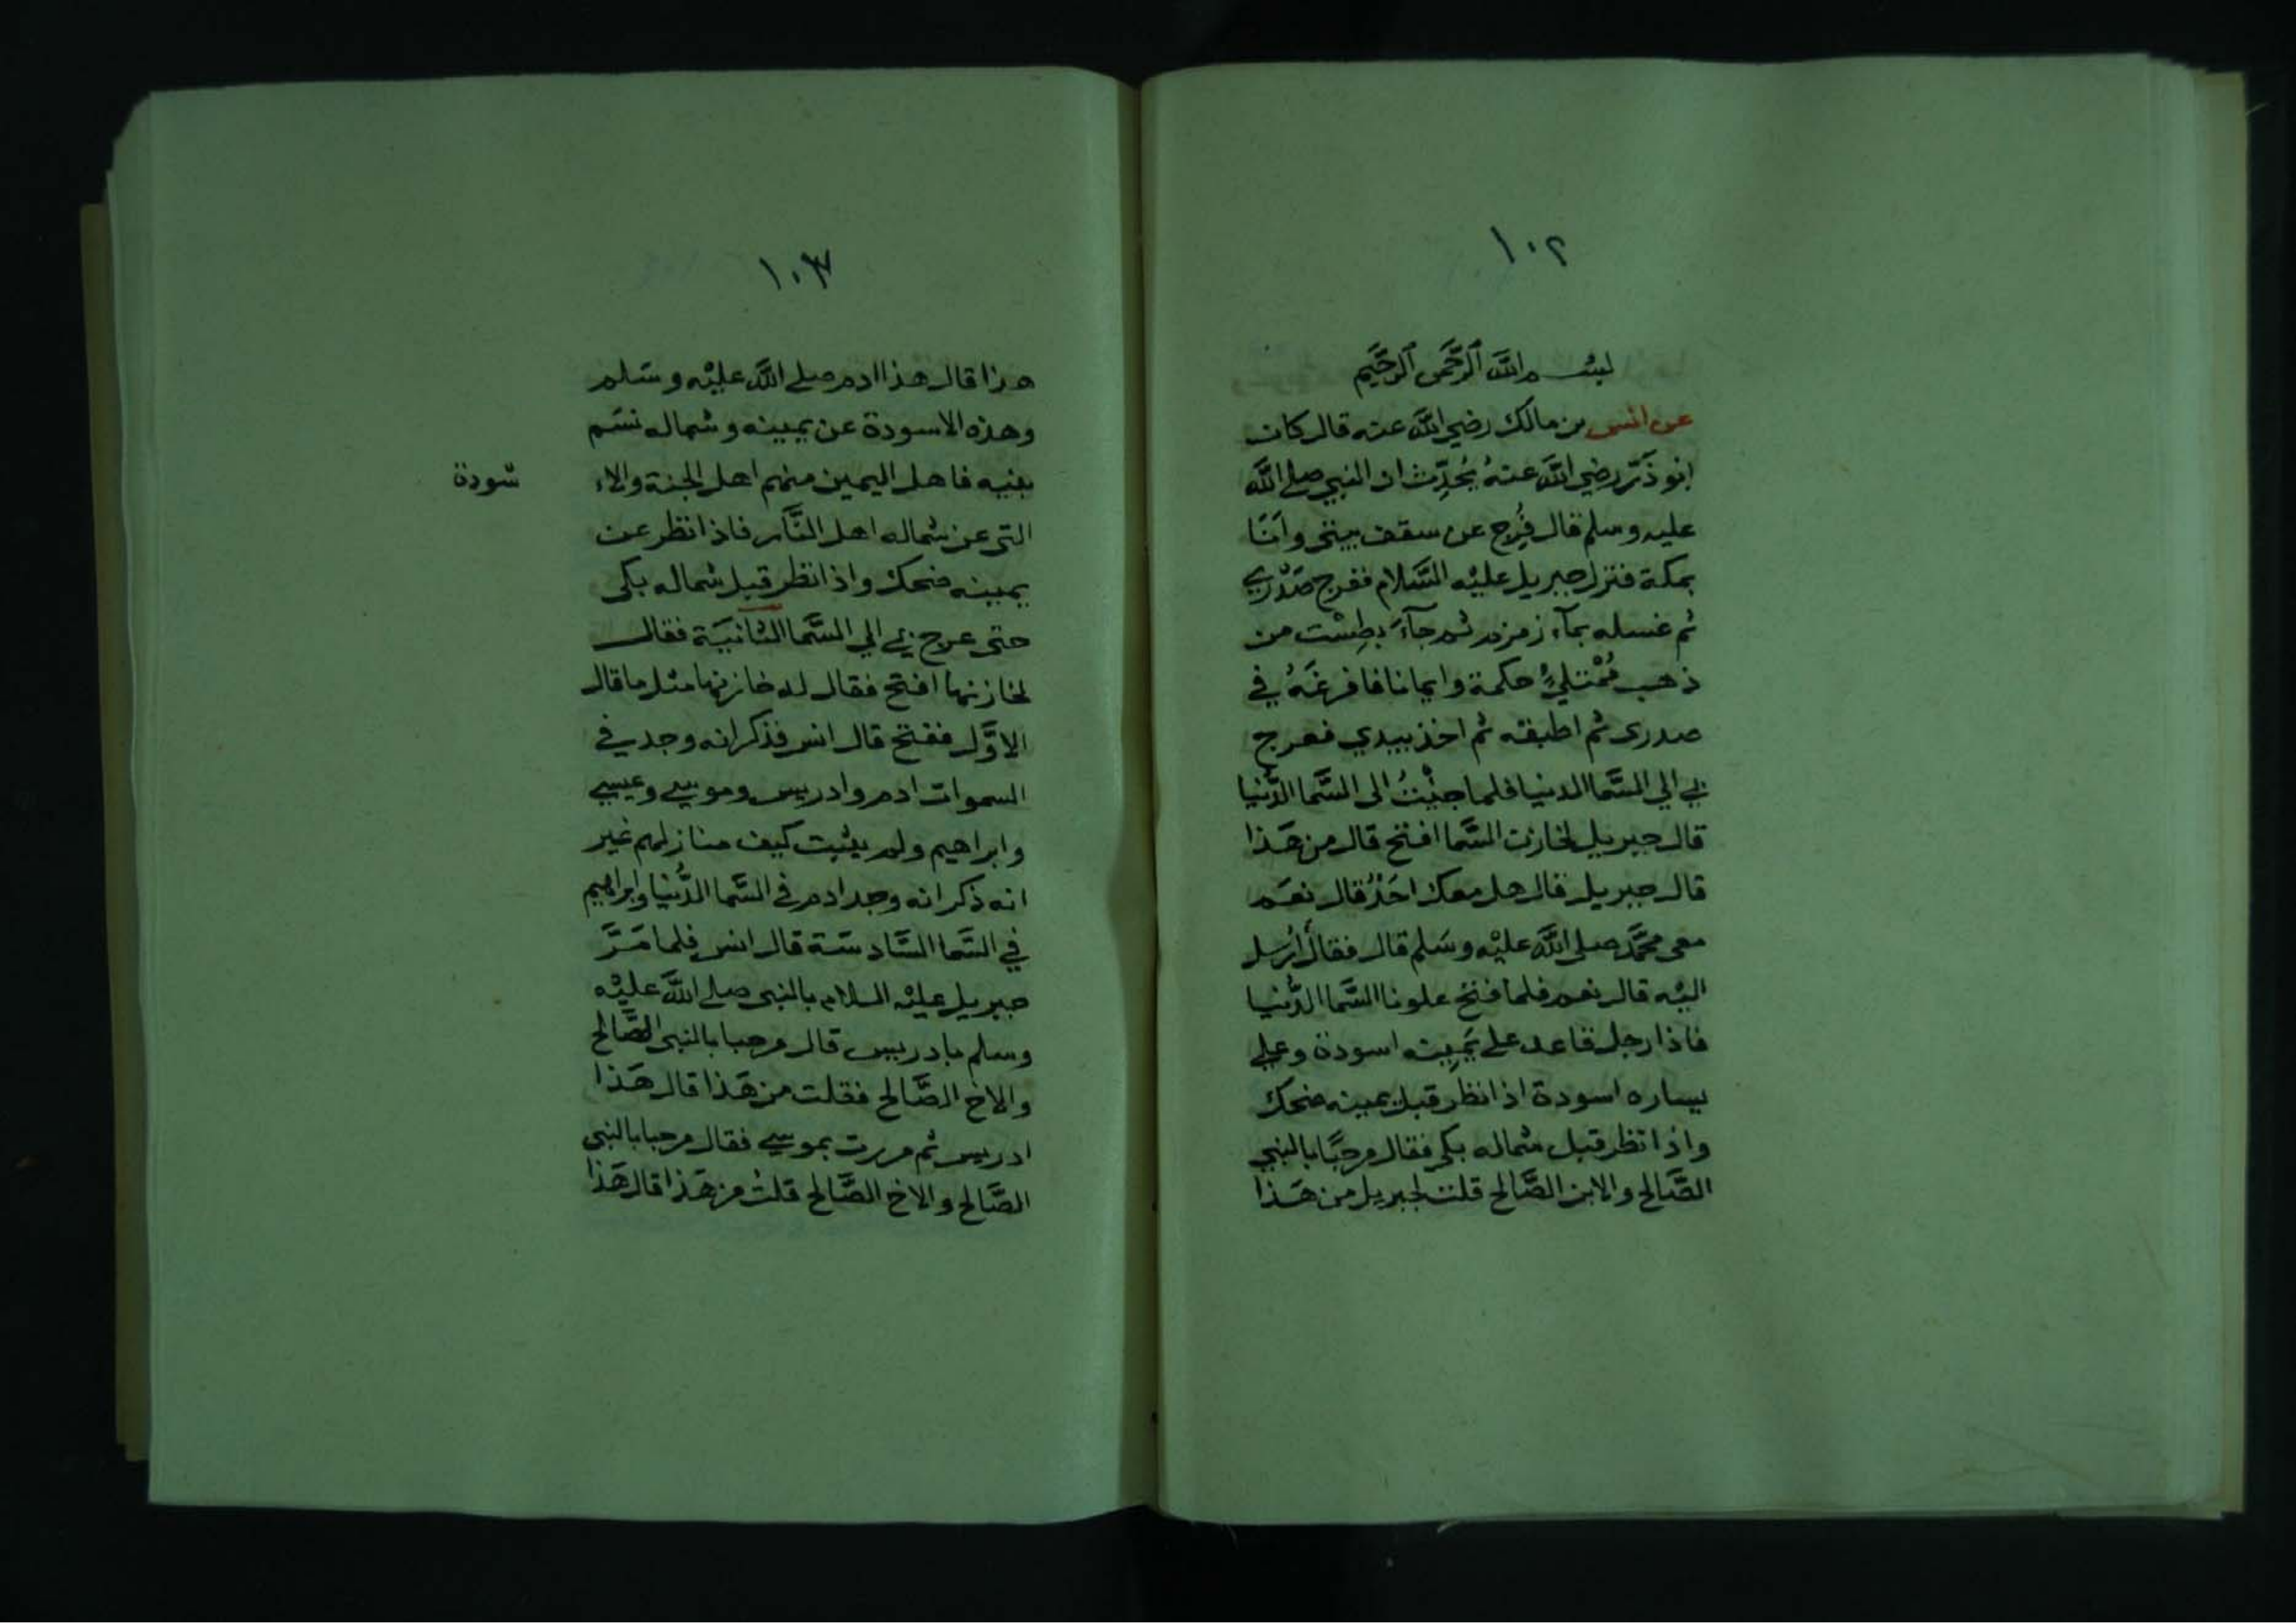 ١٠٢
بسم الله الرَّحمن الرَّحيم
عن انس بن مالك رضي الله عنه قال كان
ابو ذَرّ رضي الله عنهُ يُحدِّث ان النبي صلى الله
عليه وسلم قال فُرِج عن سقف بيتي وأنَا
بمكة فنزل جبريل عليْه السَّلام ففرج صَدْري
ثم غسله بمآء زمزم ثم جآءَ بطِسْت من
ذهب مُمْتلِئٍ حكمة وايمانا فافرغَهُ في
صدرى ثم اطبقه ثم اخذ بيدي فعرج
بي الي السَّما الدنيا فلما جئْتُ الى السَّما الدُّنيا
قال جبريل لخازن السَّما افتح قال من هَذا
قال جبريل قال هل معك احَدٌ قال نعَم
معى محمَّد صلى الله عليْه وسَلم قال فقال أُرْسل
اليْه قال نعم فلما فتح علونا السَّما الدُّنيا
فاذا رجل قاعد على يَمِينه اسودة وعلي
يساره اسودة اذا نظر قبل يمينه ضحك
واذا نظر قبل شماله بكى فقال مرحبًا بالنبي
الصَّالح والابن الصَّالح قلت لجبريل من هَذا
١٠٣
هذا قال هذا ادم صلى الله عليْه وسَلم
وهذه الاسودة عن يمينه وشماله نسَم
بنيه فاهل اليمين منهم اهل الجنة والاء سْودة
التى عن شماله اهل النَّار فاذا نظر عن
يمينه ضحك واذا نظر قبل شماله بكى
حتى عرج بي الي السَّما الثانيَة فقال
لخازنها افتح فقال له خازنها مثل ما قال
الاوَّل ففتح قال انس فذكر انه وجد في
السموات ادم وادريس وموسي وعيسي
وابراهيم ولم يثبت كيف منازلهم غير
انه ذكر انه وجد ادم في السَّما الدُّنيا وابراهيم
في السَّما السَّادسَة قال انس فلما مَرَّ
جبريل عليْه السلام بالنبى صلى الله عليْه
وسلم بادريس قال مرحبا بالنبى الصَّالح
والاخ الصَّالح فقلت من هَذا قال هَذا
ادريس ثم مررت بموسي فقال مرحبا بالنبى
الصَّالح والاخ الصَّالح قلت من هَذا قال هَذا